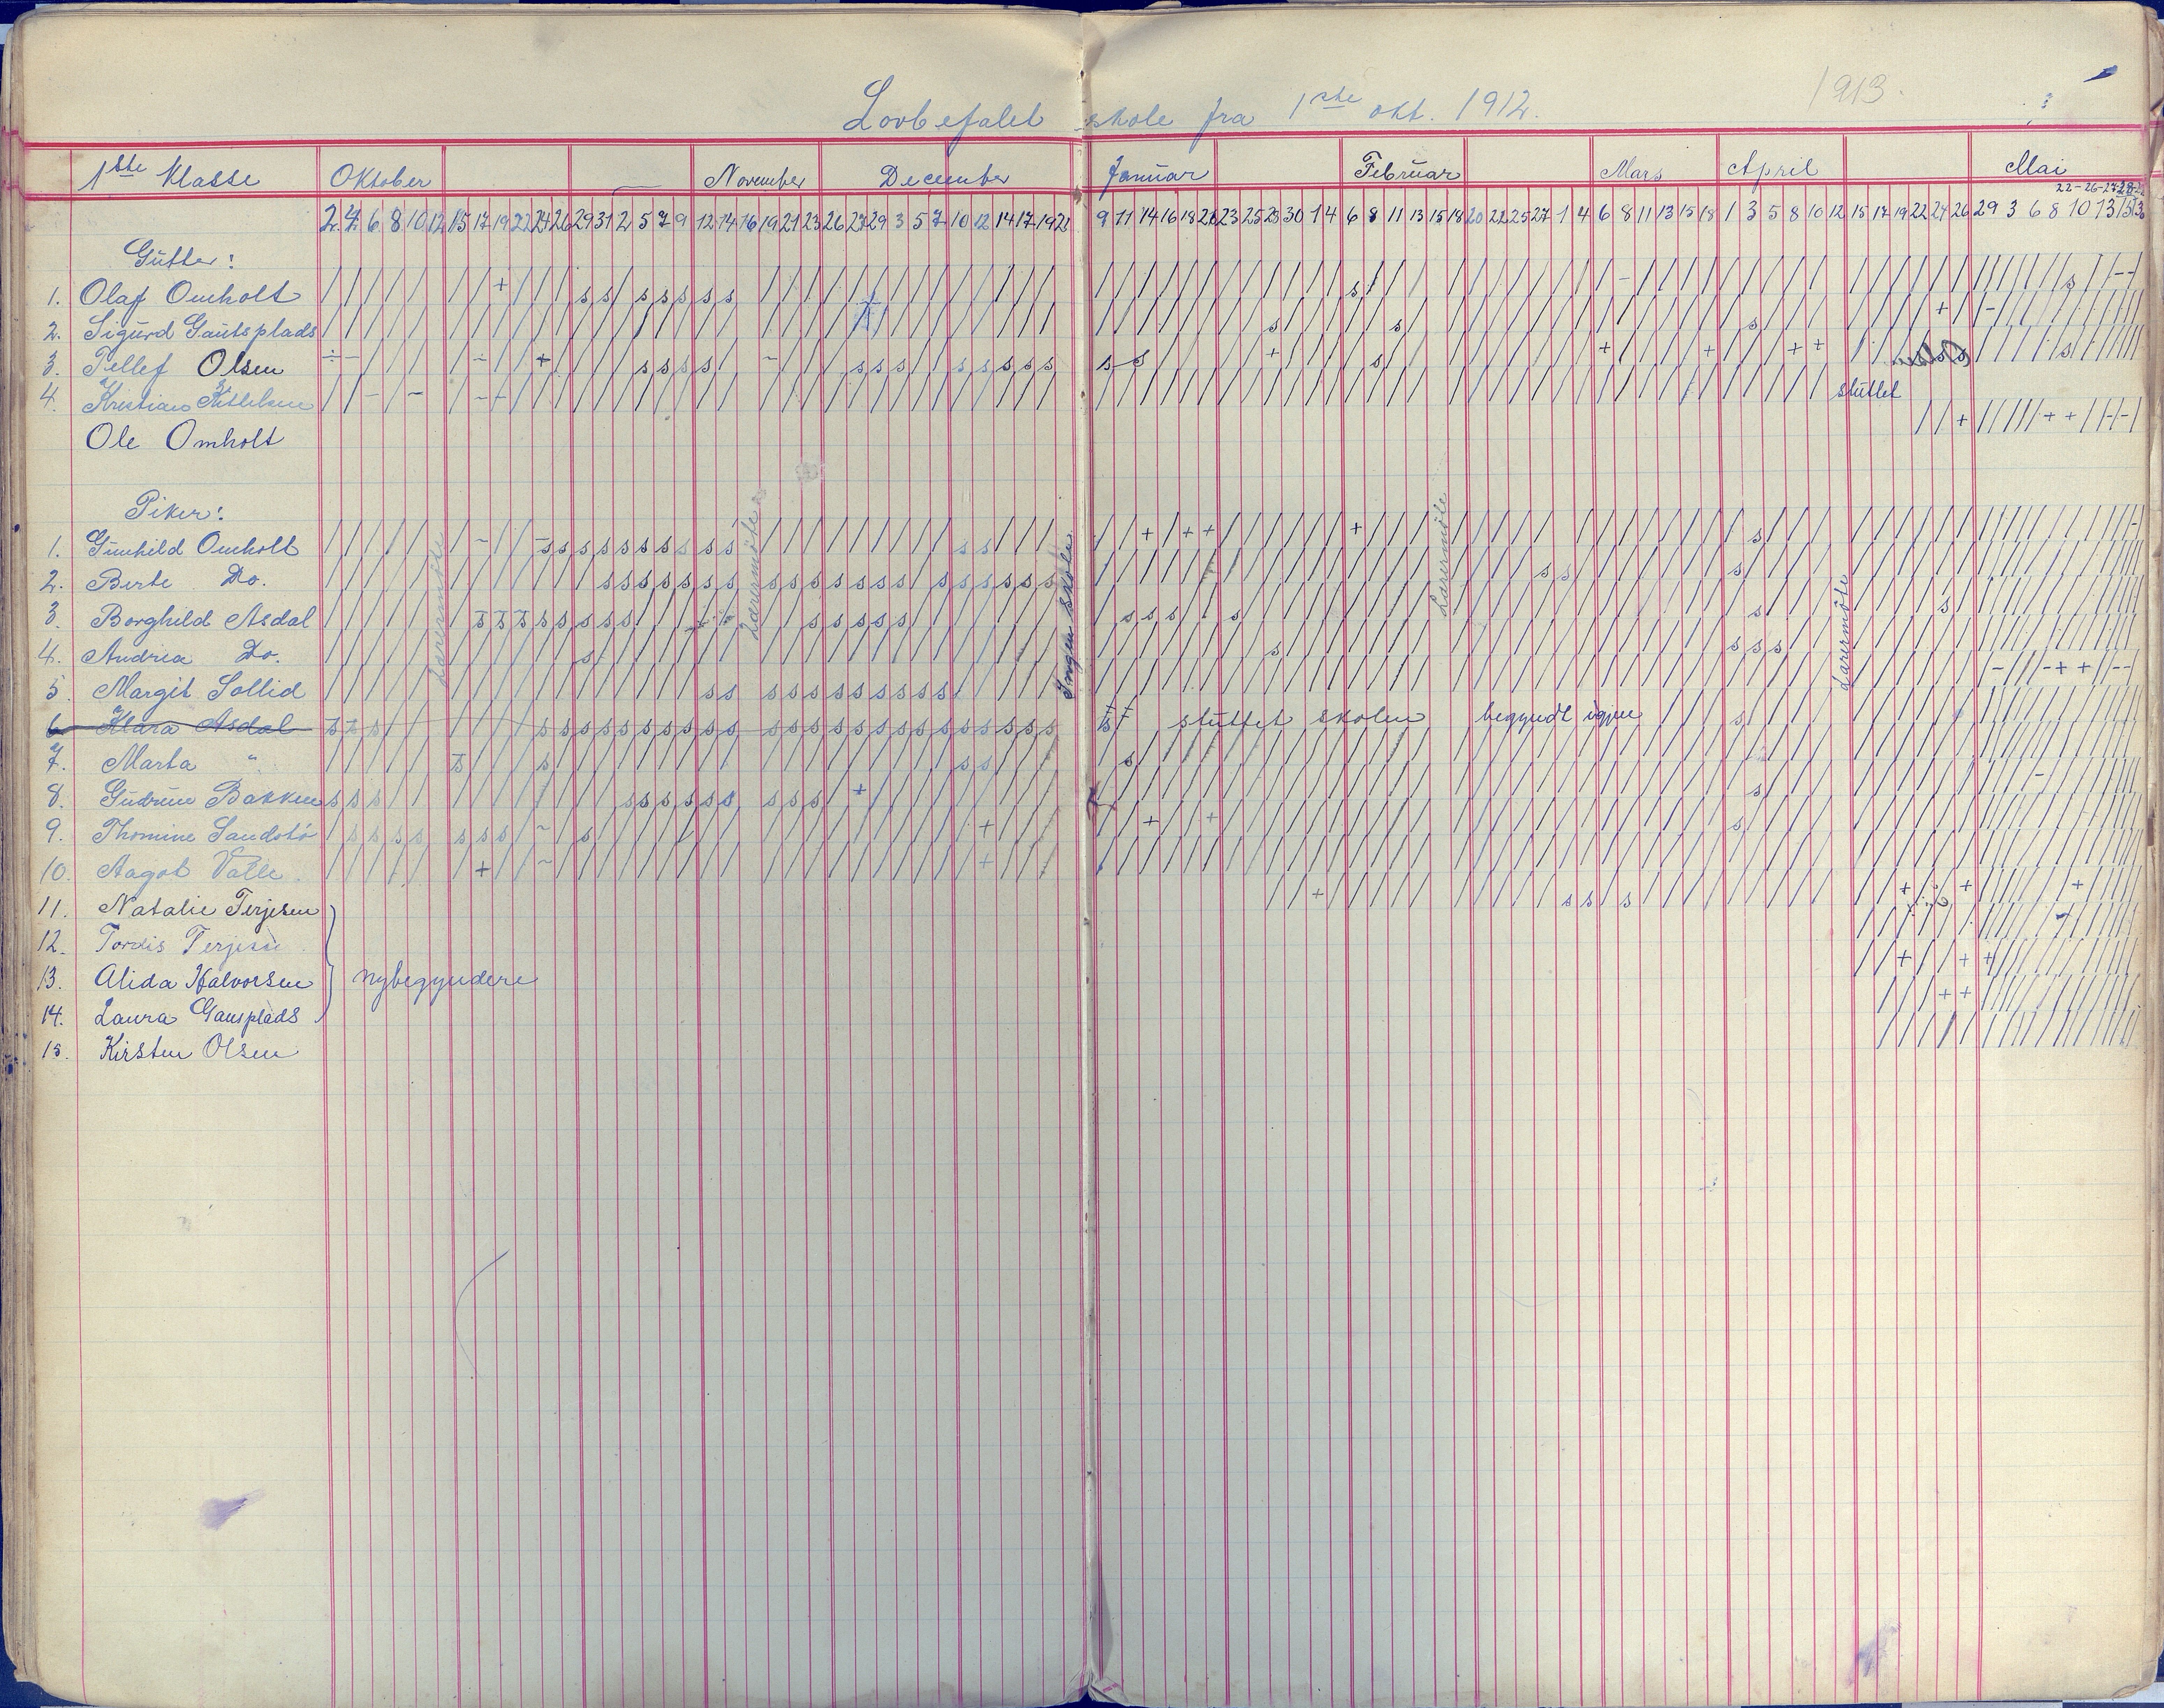 Lovbefalet skole fra 1ste okt. 1912. 1913.
1ste Klasse Oktober November December Januar Februar Mars April Mai
22-26-27-28-
2 4 6 8 10 12 15 17 19 22 24 26 29 31 2 5 7 9 12 14 16 19 21 23 26 27 29 3 5 7 10 12 14 17 19 21 9 11 14 16 18 21 23 25 28 30 1 4 6 8 11 13 15 18 20 22 25 27 1 4 6 8 11 13 15 18 1 3 5 8 10 12 15 17 19 22 24 26 29 3 6 8 10 13 15
Gutter:
1. Olaf Omholt
2. Sigurd Gautsplads
3. Tellef Olsen
4. Kristian Kittelsen sluttet
Ole Omholt
Piker:
1. Gunhild Omholt
2. Berte Do.
3. Borghild Asdal
4. Andrea Do.
5. Margit Sollid
6. Klara Asdal sluttet skolen begyndt igjen
7. Marta "
8. Gudrun Bakken
9. Thomine Sandstö
10. Aagot Valle.
11. Natalie Terjesen
12. Tordis Terjesen
13. Alida Halvorsen nybegyndere
14. Laura Gausplads
15. Kirsten Olsen
Lærermöte
Lærermöte
Ingen skole
Lærermöte
Lærermöte